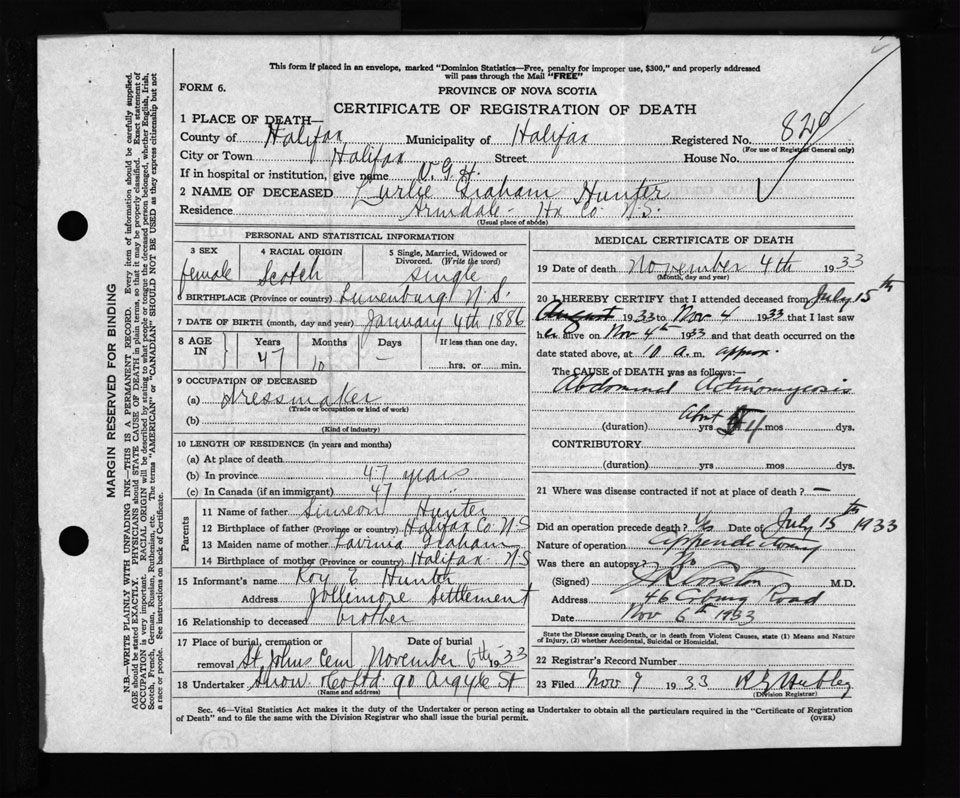 This form if placed in an envelope, marked "Dominion Statistics—Free, penalty for improper use, $300," and properly addressed
will pass through the Mail "FREE"
FORM 6.
PROVINCE OF NOVA SCOTIA
CERTIFICATE OF REGISTRATION OF DEATH
1 PLACE OF DEATH—
County of Halifax Municipality of Halifax Registered No. 820
(For use of Registrar General only)
City or Town Halifax Street House No.
If in hospital or institution, give name V.G.H.
2 NAME OF DECEASED Lurlie Graham Hunter
Residence Armdale - Hx Co. N.S.
(Usual place of abode)
PERSONAL AND STATISTICAL INFORMATION
3 SEX 4 RACIAL ORIGIN 5 Single, Married, Widowed or
Divorced. (Write the word)
female Scotch single
6 BIRTHPLACE (Province or country) Lunenburg N.S.
7 DATE OF BIRTH (month, day and year) January 4th 1886
8 AGE IN Years Months Days If less than one day,
47 10 — hrs. or min.
9 OCCUPATION OF DECEASED
(a) Dressmaker
(Trade or occupation or kind of work)
(b)
(Kind of industry)
10 LENGTH OF RESIDENCE (in years and months)
(a) At place of death
(b) In province 47 years
(c) In Canada (if an immigrant) 47
Parents
11 Name of father Simeon Hunter
12 Birthplace of father (Province or country) Halifax Co. N.S
13 Maiden name of mother Lavinia Graham
14 Birthplace of mother (Province or country) Halifax N.S
15 Informant's name Roy E Hunter
Address Jollimore Settlement
16 Relationship to deceased brother
17 Place of burial, cremation or Date of burial
removal St Johns Cem November 6th 1933
18 Undertaker Snow & Co Ltd 90 Argyle St
(Name and address)
MEDICAL CERTIFICATE OF DEATH
19 Date of death November 4th 1933
(Month, day and year)
20 I HEREBY CERTIFY that I attended deceased from July 15th
August 1933 to Nov 4 1933 that I last saw
her alive on Nov 4th 1933 and that death occurred on the
date stated above, at 10 a.m. approx.
The CAUSE of DEATH was as follows:—
Abdominal Actinomycosis
(duration) yrs 4 mos dys.
CONTRIBUTORY
(duration) yrs mos dys.
21 Where was disease contracted if not at place of death? —
Did an operation precede death? Yes Date of July 15th 1933
Nature of operation appendectomy
Was there an autopsy?
(Signed) M.D.
Address 46 Coburg Road
Date Nov 6th 1933
State the Disease causing Death, or in death from Violent Causes, state (1) Means and Nature
of Injury, (2) whether Accidental, Suicidal or Homicidal.
22 Registrar's Record Number
23 Filed Nov 9 1933 Hubley
(Division Registrar)
Sec. 46—Vital Statistics Act makes it the duty of the Undertaker or person acting as Undertaker to obtain all the particulars required in the "Certificate of Registration
of Death" and to file the same with the Division Registrar who shall issue the burial permit.
(OVER)
MARGIN RESERVED FOR BINDING
N.B.—WRITE PLAINLY WITH UNFADING INK—THIS IS A PERMANENT RECORD. Every item of information should be carefully supplied.
AGE should be stated EXACTLY. PHYSICIANS should STATE CAUSE OF DEATH in plain terms, so that it may be properly classified. Exact statement of
OCCUPATION is very important. RACIAL ORIGIN will be described by stating to what people or tongue the deceased person belonged, whether English, Irish,
Scotch, French, German, Russian, Ruthenian, etc. The terms "AMERICAN" or "CANADIAN" SHOULD NOT BE USED as they express citizenship but not
a race or people. See instructions on back of Certificate.